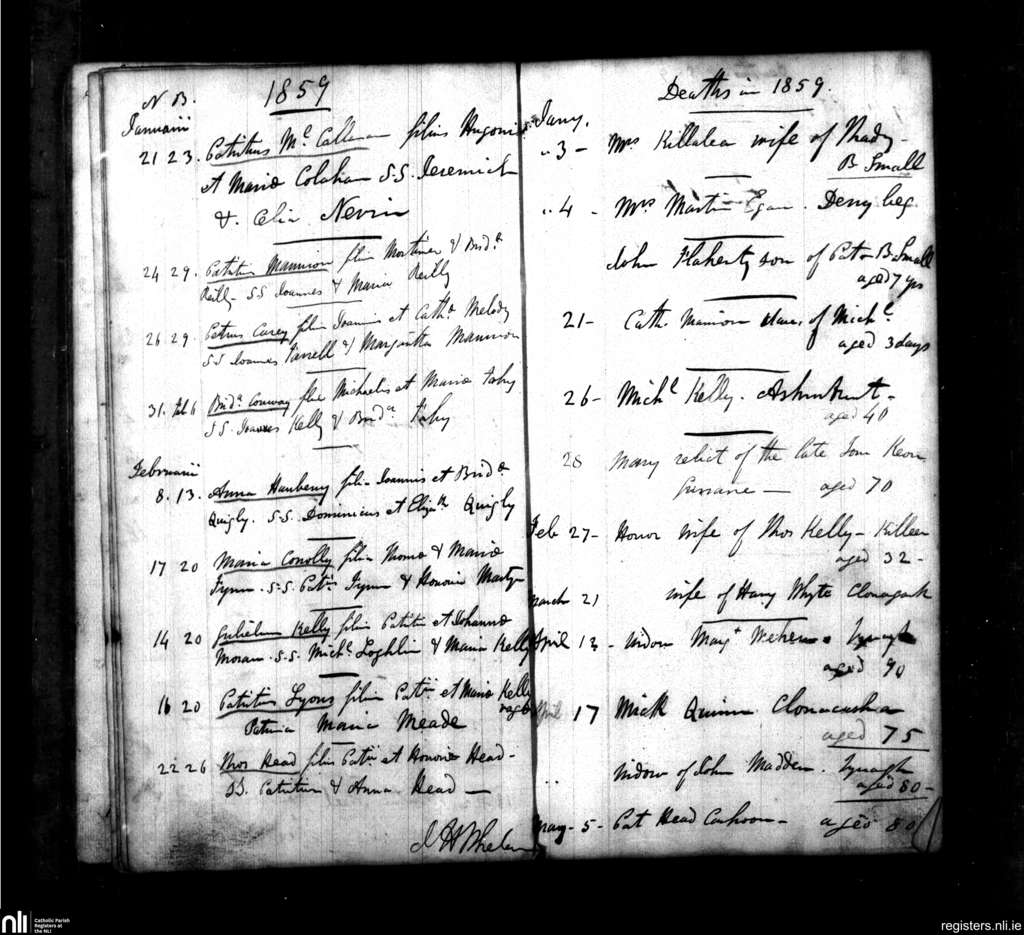 N. B. 1859
Januarii
21 23. Patritius McCallanan filius Hugonis
et Maria Colahan S.S. Jeremiah
& Celia Nevin
24 29. Patritius Mannion filius Mortimer & Brid.
Reilly S S Joannes & Maria Reilly
26 29. Petrus Carey filius Joannis et Cath. Melody
S S Joannes Farrell & Margaritta Mannion
31. Feb 6 Brid. Conway filia Michaelis et Maria
S S. Joannes Kelly & Brid.
Februarii
8. 13. Anna Hanbeny filia Joannis et Brid.
Quigly. S.S. Dominicus et Elizth Quigly
17 20 Maria Conolly filia Thoma & Maria
Fynn. S.S. Pat. Fynn & Honoria Martyn
14 20 Gulielmus Kelly filius Patritii et Johanna
Moran. S.S. Michl Loghlin & Maria Kelly
16 20 Patritius Lyons filius Pat. et Maria Kelly
Patrina Maria Meade
22 26 Thos Head filius Pat. et Honoria Head -
SS. Patritius & Anna Head —
J H Whelan
Deaths in 1859.
Jany.
" 3 - Mrs Killalea wife of Thady -
B Small
" 4 - Mrs Martin Egan. Derry
John Flaherty son of Pat. B. Small
aged 7 yrs
21 - Cath. Mannion of Michl.
aged 3 days
26 - Michl Kelly.
aged 40
28 Mary relict of the late Tom Keon
Gurrane — aged 70
Feb 27 - Honor wife of Thos Kelly - Killeen
aged 32 -
March 21 wife of Harry Whyte
April 13 - Widow Tynagh
aged 90
April 17 Mick Quinn Clonacusha
aged 75
" Widow of John Madden. Tynagh
aged 80 -
May - 5 - Pat Head - aged 80
nli Catholic Parish
Registers at
the NLI
registers.nli.ie